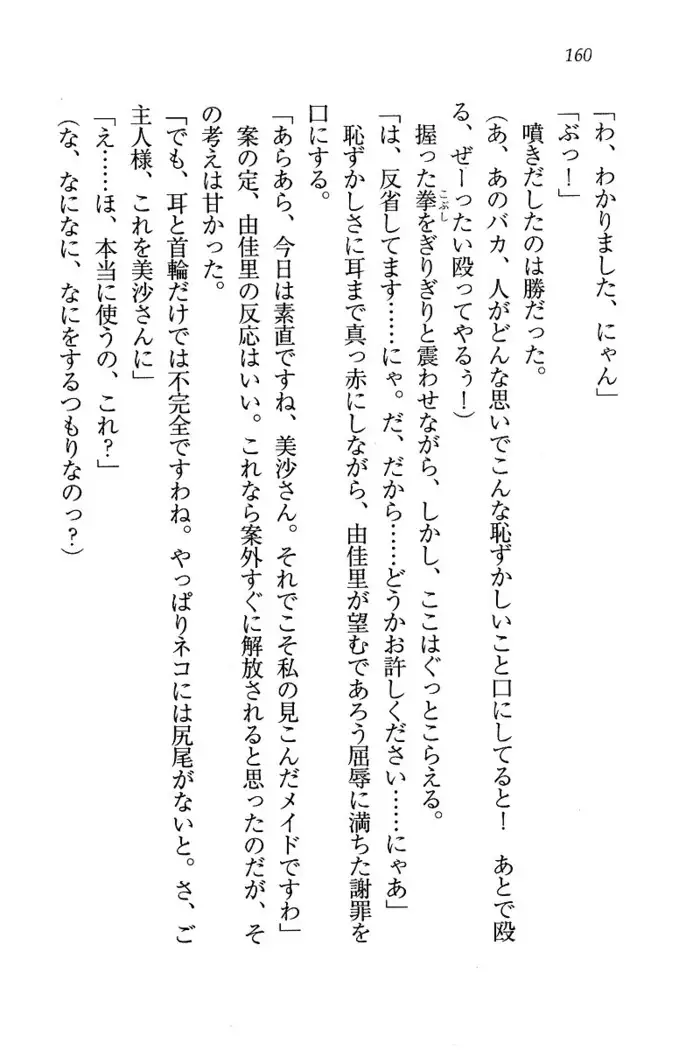 160
「わ、わかりました、にゃん」
「ぶっ！」
噴きだしたのは勝だった。
（あ、あのバカ、人がどんな思いでこんな恥ずかしいこと口にしてると！　あとで殴
る、ぜーったい殴ってやるぅ！）
握った拳をぎりぎりと震わせながら、しかし、ここはぐっとこらえる。
こぶし
「は、反省してます……にゃ。だ、だから……どうかお許しください……にゃあ」
恥ずかしさに耳まで真っ赤にしながら、由佳里が望むであろう屈辱に満ちた謝罪を
口にする。
「あらあら、今日は素直ですね、美沙さん。それでこそ私の見こんだメイドですわ」
案の定、由佳里の反応はいい。これなら案外すぐに解放されると思ったのだが、そ
の考えは甘かった。
「でも、耳と首輪だけでは不完全ですわね。やっぱりネコには尻尾がないと。さ、ご
主人様、これを美沙さんに」
「え……ほ、本当に使うの、これ？」
（な、なになに、なにをするつもりなのっ？）